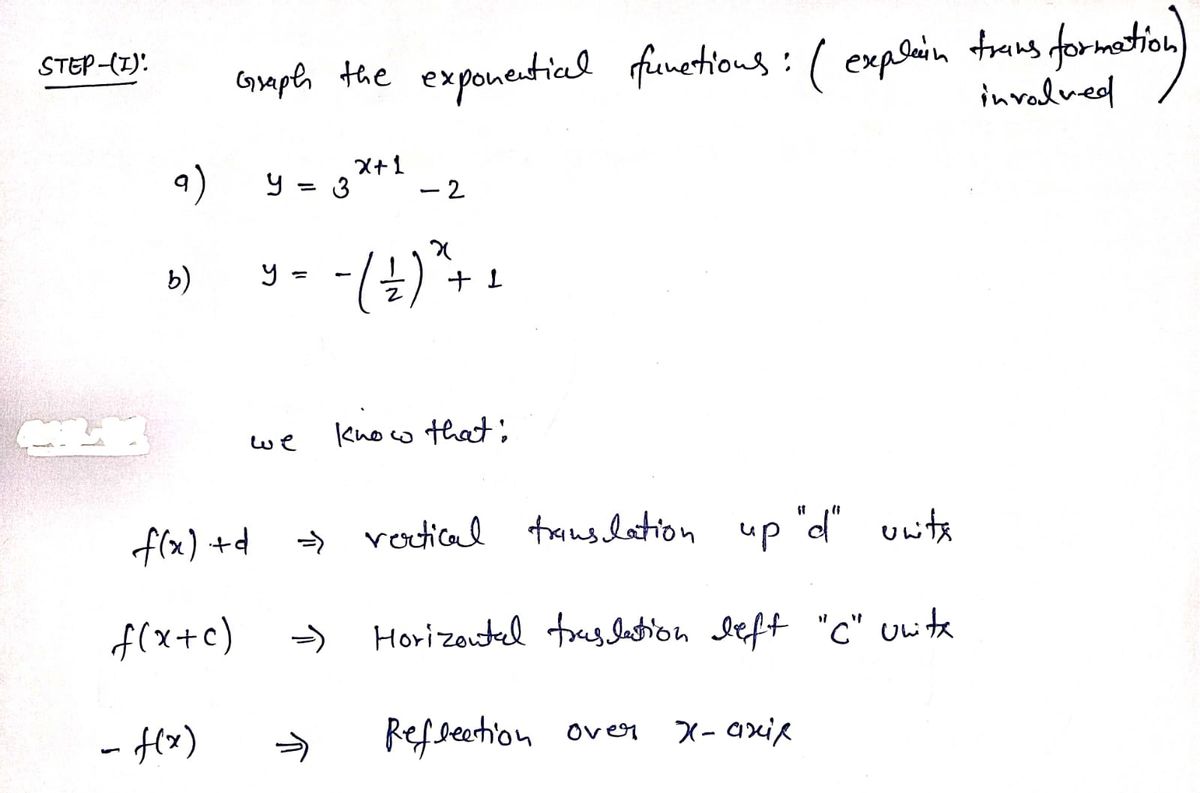 STEP-(I):
Graph the exponential functions: ( explain transformation involved )
a) y = 3^{x+1} - 2
b) y = -(1/2)^x + 1
we know that:
f(x) + d ⇒ vertical translation up "d" units
f(x+c) ⇒ Horizontal traslation left "c" units
- f(x) ⇒ Reflection over x-axis